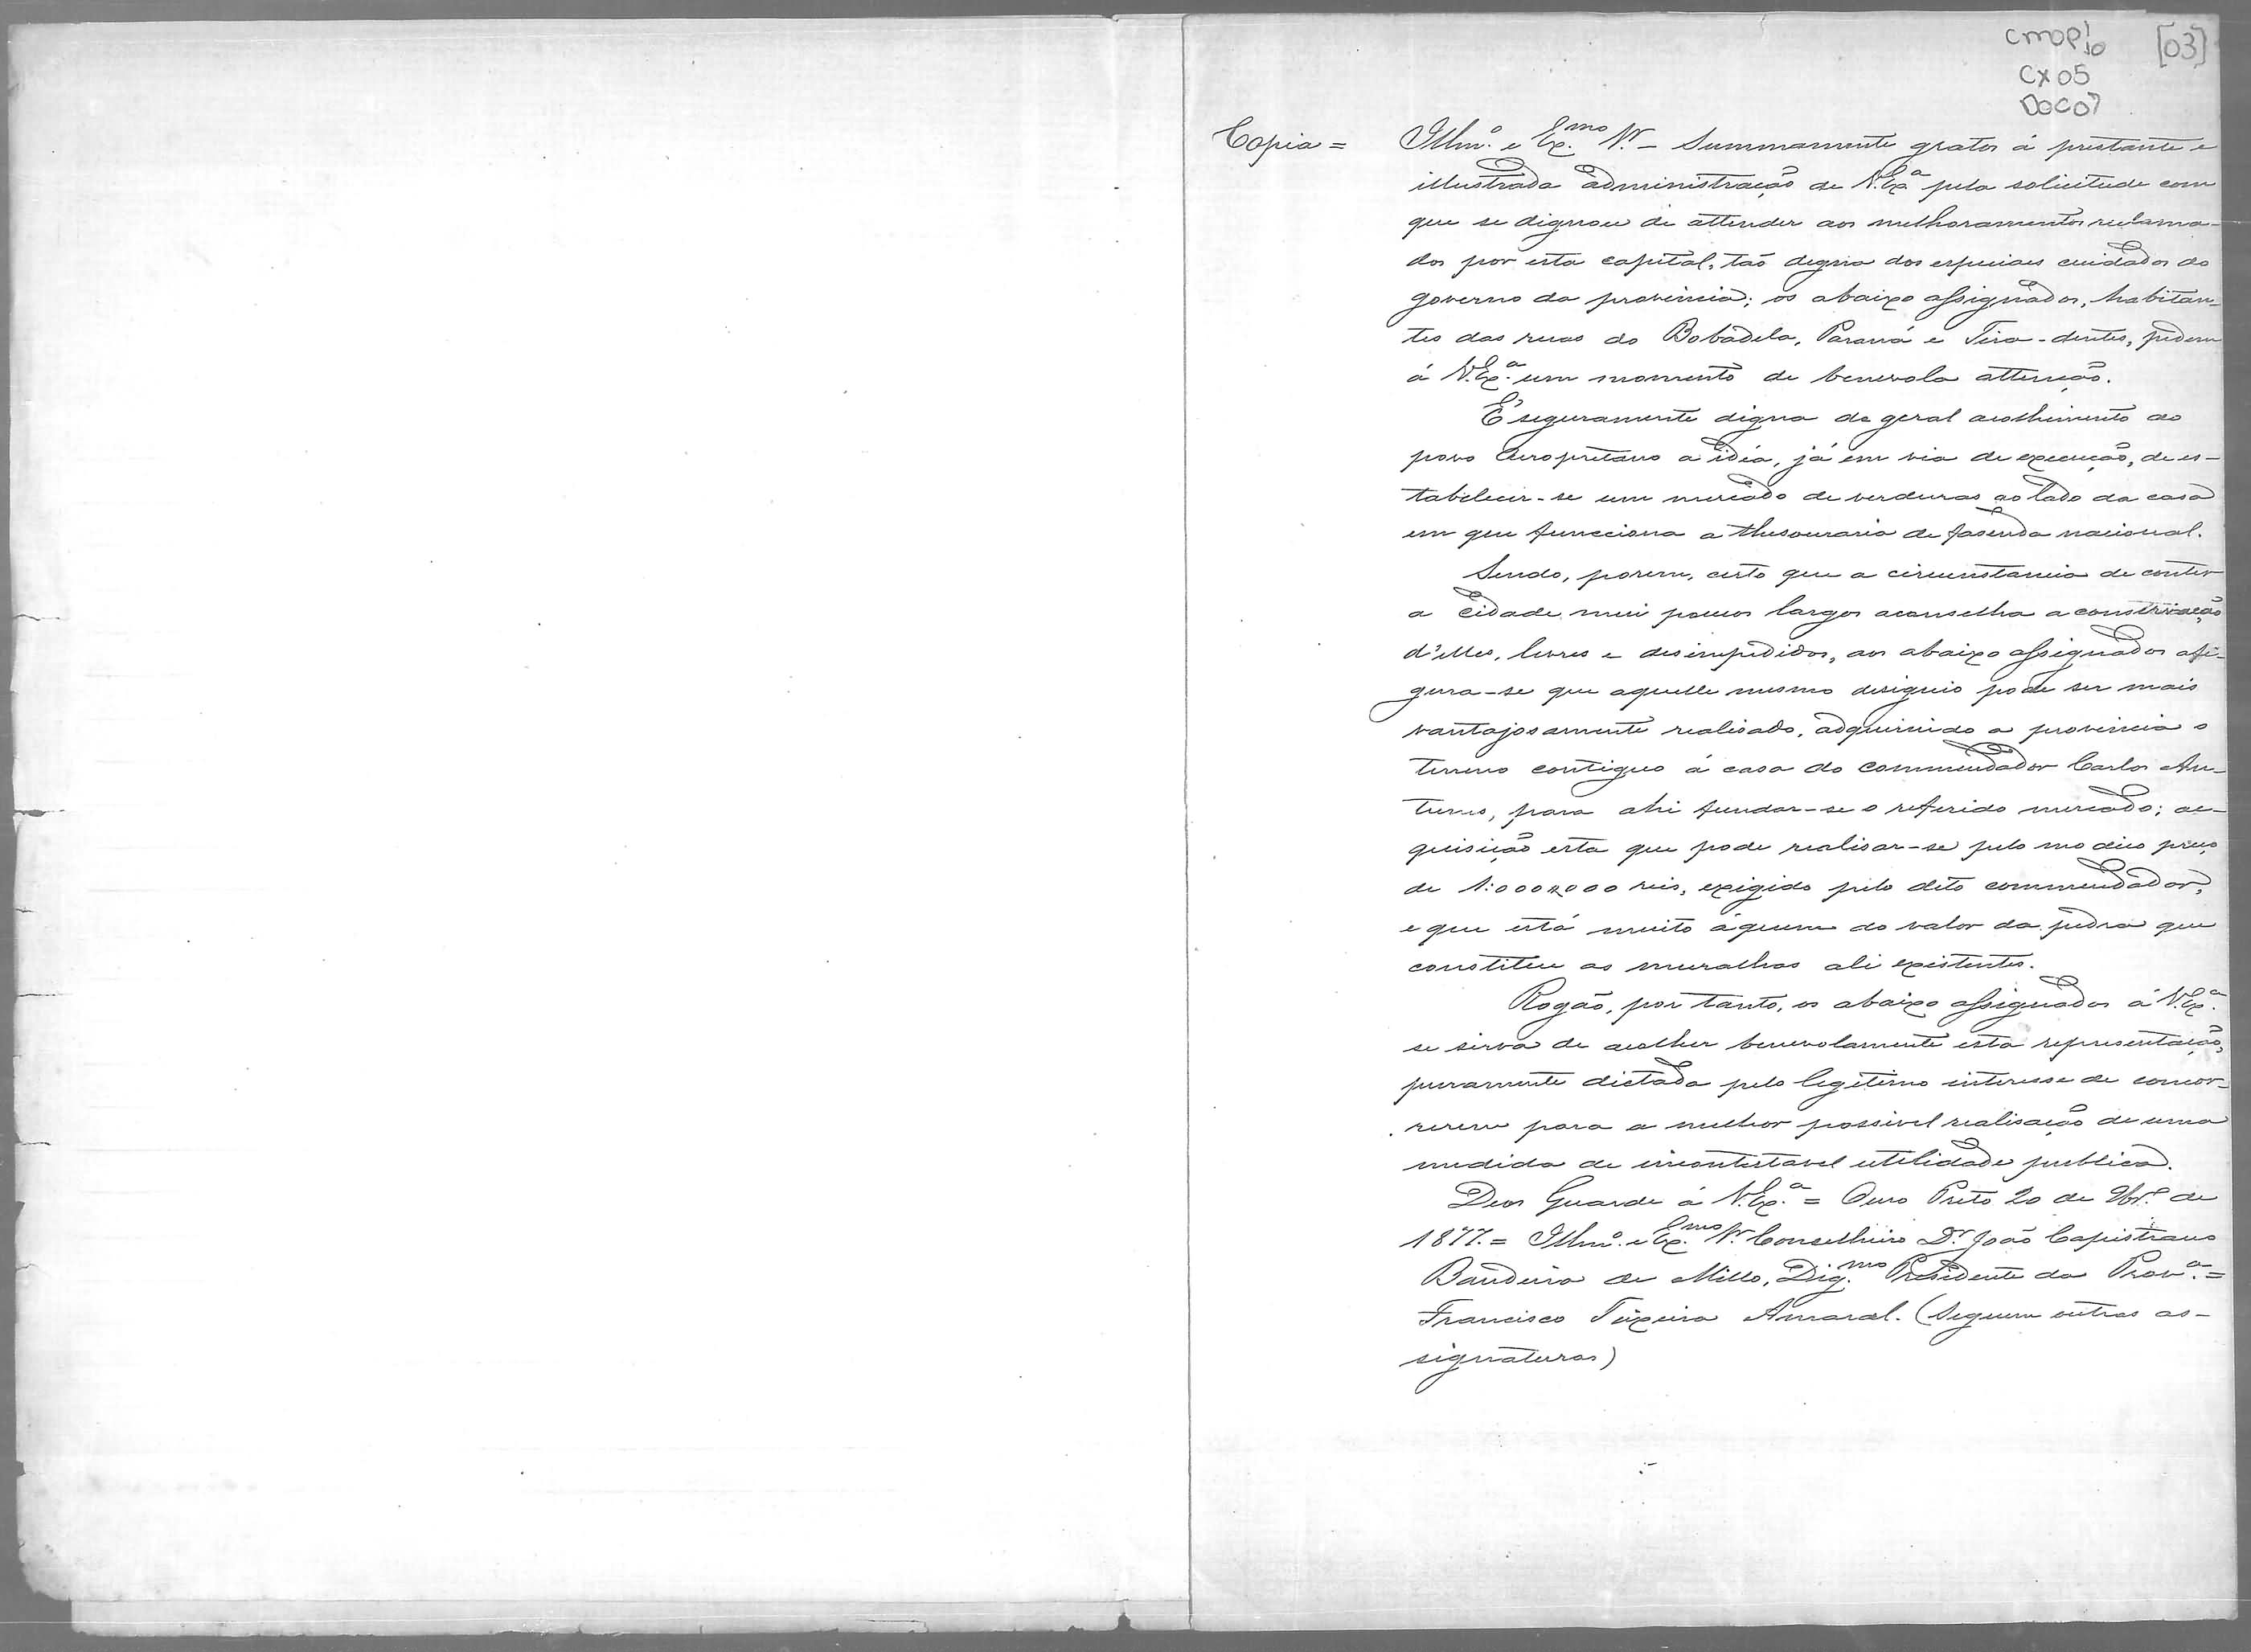 CMOP/10 [03]
CX 05
DOC 07
Copia = Illm.º e Ex.mo Sr. – Summamente gratos á prestante e
illustrada administração de V. Ex.a pela solicitude com
que se dignou de attender aos melhoramentos reclama-
dos por esta capital, tão digna dos especiaes cuidados do
governo da provincia; os abaixo assignados, habitan-
tes das ruas do Bobadela, Paraná e Tira-dentes, pedem
á V. Ex.a um momento de benevola attenção.
É seguramente digna de geral acolhimento do
povo Ouropretano a idéa, já em via de execução, de es-
tabelecer-se um mercado de verduras ao lado da casa
em que funcciona a thesouraria de fasenda nacional.
Sendo, porem, certo que a circunstancia de conter
a cidade mui poucos largos aconselha a conservação
d'elles, livres e desimpedidos, aos abaixo assignados afi-
gura-se que aquelle mesmo designio pode ser mais
vantajosamente realisado, adquirindo a provincia o
terreno contiguo á casa do commendador Carlos An-
tunes, para ahi fundar-se o referido mercado; ac-
quisição esta que pode realisar-se pelo modico preço
de 1:000$000 reis, exigido pelo dito commendador,
e que está muito áquem do valor da pedra que
constitue as muralhas ali existentes.
Rogão, por tanto, os abaixo assignados á V. Ex.a
se sirva de acolher benevolamente esta representação,
puramente dictada pelo legitimo interesse de concor-
rerem para a melhor possivel realisação de uma
medida de incontestavel utilidade publica.
Deos Guarde á V. Ex.a = Ouro Preto 20 de 9br.º de
1877. = Illm.º e Ex.mo Sr. Conselheiro Dr. João Capistrano
Bandeira de Mello, Dig.mo Presidente da Prov.a =
Francisco Teixeira Amaral. (Seguem outras as-
signaturas)